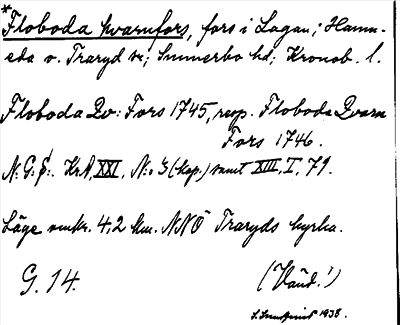 * Floboda kvarnfors, fors i Lagan; Hamn-
eda o. Traryd sn; Sunnerbo hd; Kronob. l.
Floboda Qv: Fors 1745, resp. Floboda Qvarn
Fors 1746.
N:o 3 (kop.) samt XIII, I, 79.
Läge omkr. 4,2 km. NNO Traryds kyrka.
G. 14.
1938.